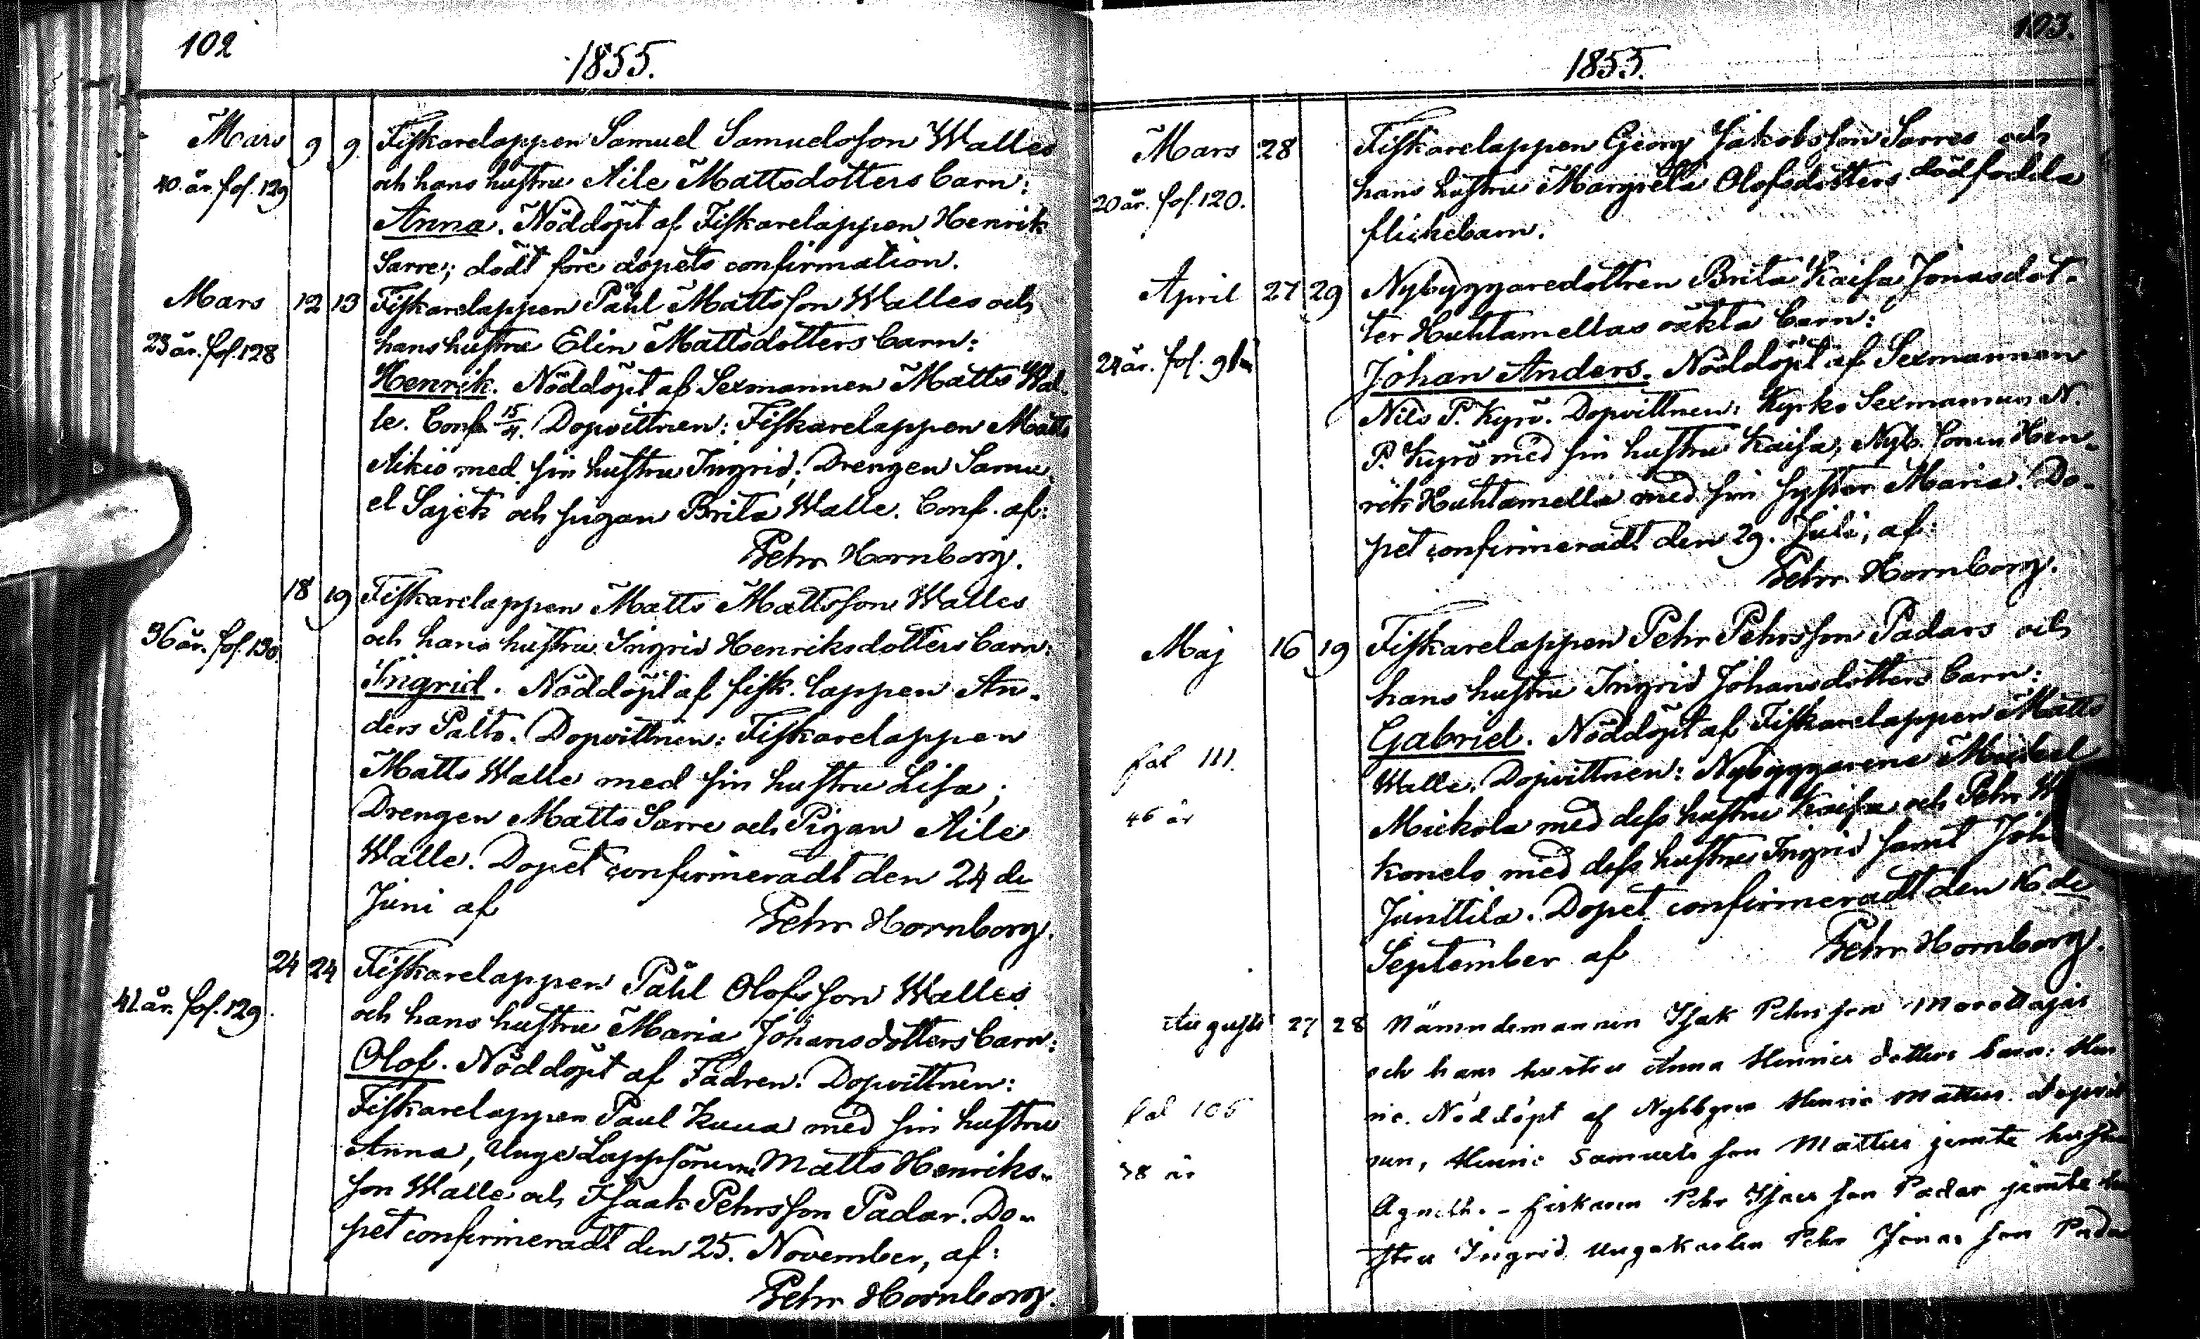 102
1855.
Mars 9 9 Fiskarelappen Samuel Samuelsson Walles
40. år. fol. 129 och hans hustru Aile Mattsdotters barn:
Anna. Nöddöpt af Fiskarelappen Henrik
Sarre; dödt före dopets confirmation.
Mars 12 13 Fiskarelappen Påhl Mattsson Walles och
23 år. fol. 128 hans hustru Elin Mattsdotters barn:
Henrik. Nöddöpt af Sexmannen Matts Wal-
le. Conf. 15/4. Dopvittnen: Fiskarelappen Matts
Aikio med sin hustru Ingrid; Drengen Samu-
el Sajek och pigan Brita Walle. Conf. af:
Pehr Hornborg.
18 19 Fiskarelappen Matts Mattsson Walles
36 år. fol. 130. och hans hustru Ingrid Henriksdotters barn:
Ingrid. Nöddöpt af fisk. lappen An-
ders Palto. Dopvittnen: Fiskarelappen
Matts Walle med sin hustru Lisa;
Drengen Matts Sarre och Pigan Aile
Walle. Dopet confirmeradt den 24 de
Juni af Pehr Hornborg.
24 24 Fiskarelappen Påhl Olofsson Walles
41 år. fol. 129. och hans hustru Maria Johansdotters barn:
Olof. Nöddöpt af Fadren. Dopvittnen:
Fiskarelappen Paul Kuua med sin hustru
Anna, Unge Lappsönerne Matts Henriks-
son Walle och Isaak Pehrsson Padar. Do-
pet confirmeradt den 25. November, af:
Pehr Hornborg.
103.
1855.
Mars 28 Fiskarelappen Georg Jakobsson Sarres och
20 år. fol. 120. hans hustru Margreta Olofsdotters dödfödda
flickebarn.
April 27 29 Nybyggaredottren Brita Kaisa Jonasdot-
ter Huhtamellas oäkta barn:
24 år. fol. Johan Anders. Nöddöpt af Sexmannen
Nils P. Kyrö. Dopvittnen: Kyrko Sexmannen N.
P. Kyrö med sin hustru Kaisa, Nyb. sonen Hen-
rik Huhtamella med sin syster Maria. Do-
pet confirmeradt den 29. Juli, af:
Pehr Hornborg.
Maj 16 19 Fiskarelappen Pehr Pehrsson Padars och
hans hustru Ingrid Johansdotters barn:
Gabriel. Nöddöpt af Fiskarelappen Matts
fol 111. Walle. Dopvittnen: Nybyggarene Michel
46 år Mickola med dess hustru Kaisa och Pehr
konels med dess hustru Ingrid samt Joh
Junttila. Dopet confirmeradt den 16 de
September af Pehr Hornborg.
Augusti 27 28 Nämndemannen Isak Pehrsson Morottajas
och hans hustru Anna Henricsdotters barn: Hen
ric. Nöddöpt af Nybbgn Henric Mattus. Dopvitt
fol 106 nen, Henric Samuelsson Mattus jemte hustru
38 år Agneth. - fiskaren Pehr Isacsson Padar jemte hu
stru Ingrid. Ungakarlen Pehr Jonasson Padar